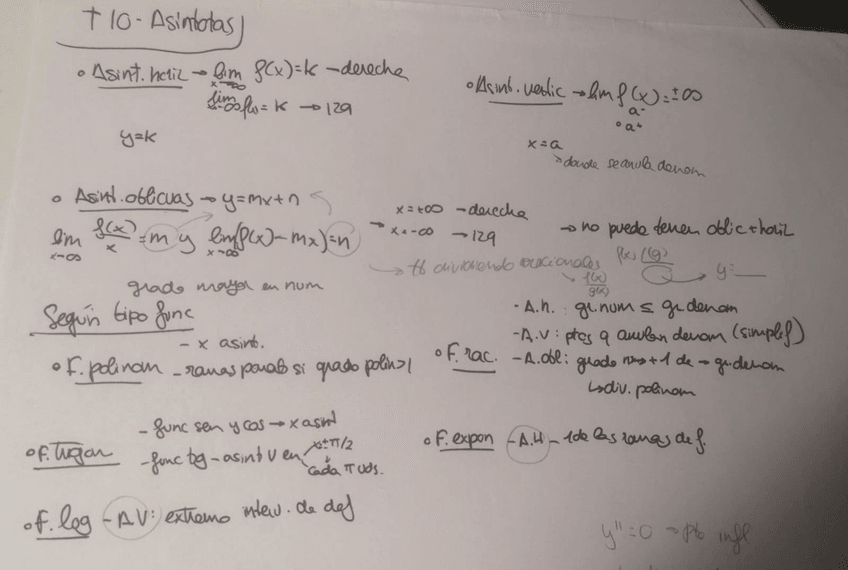 T 10 - Asíntotas
• Asínt. horiz → lim f(x) = k - derecha
x→∞
lim f(x) = k → izq
x→-∞
y = k
• Asínt. vertic → lim f(x) = ±∞
a⁻
• a⁺
x = a
→ donde se anula denom
• Asínt. oblicuas → y = mx + n
lim f(x)/x = m y lim (f(x) - mx) = n
x→∞ x→∞
→ x = +∞ - derecha
x = -∞ → izq
→ no puede tener oblic + horiz
→ tb dividiendo racionales
→ f(x)/g(x)
f(x) | g(x)
→ y = __
grado mayor en num
Según tipo func
• F. polinom - x asínt.
- ramas parab si grado polin > 1
• F. rac. - A.h. : gr. num ≤ gr. denom
- A.V : ptos q anulan denom (simplif)
- A.obl : grado num +1 de → gr. denom
↳ div. polinom
• F. trigon - func sen y cos → x asínt
- func tg - asínt V en x = π/2
cada π uds.
• F. expon - A.H - 1 de las ramas de f.
• F. log - A.V : extremo interv. de def
y'' = 0 → pto infl